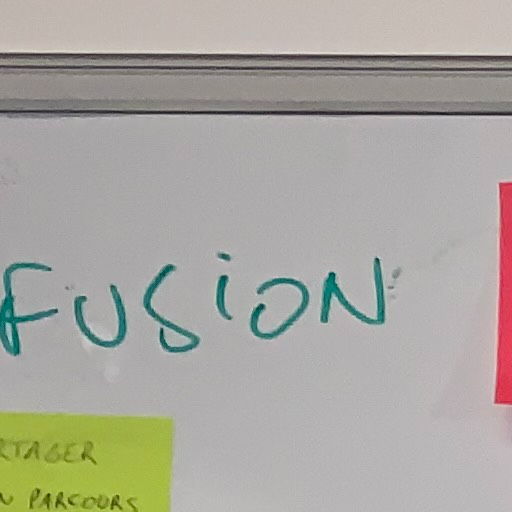 FUSiON
RTAGER
N PARCOURS